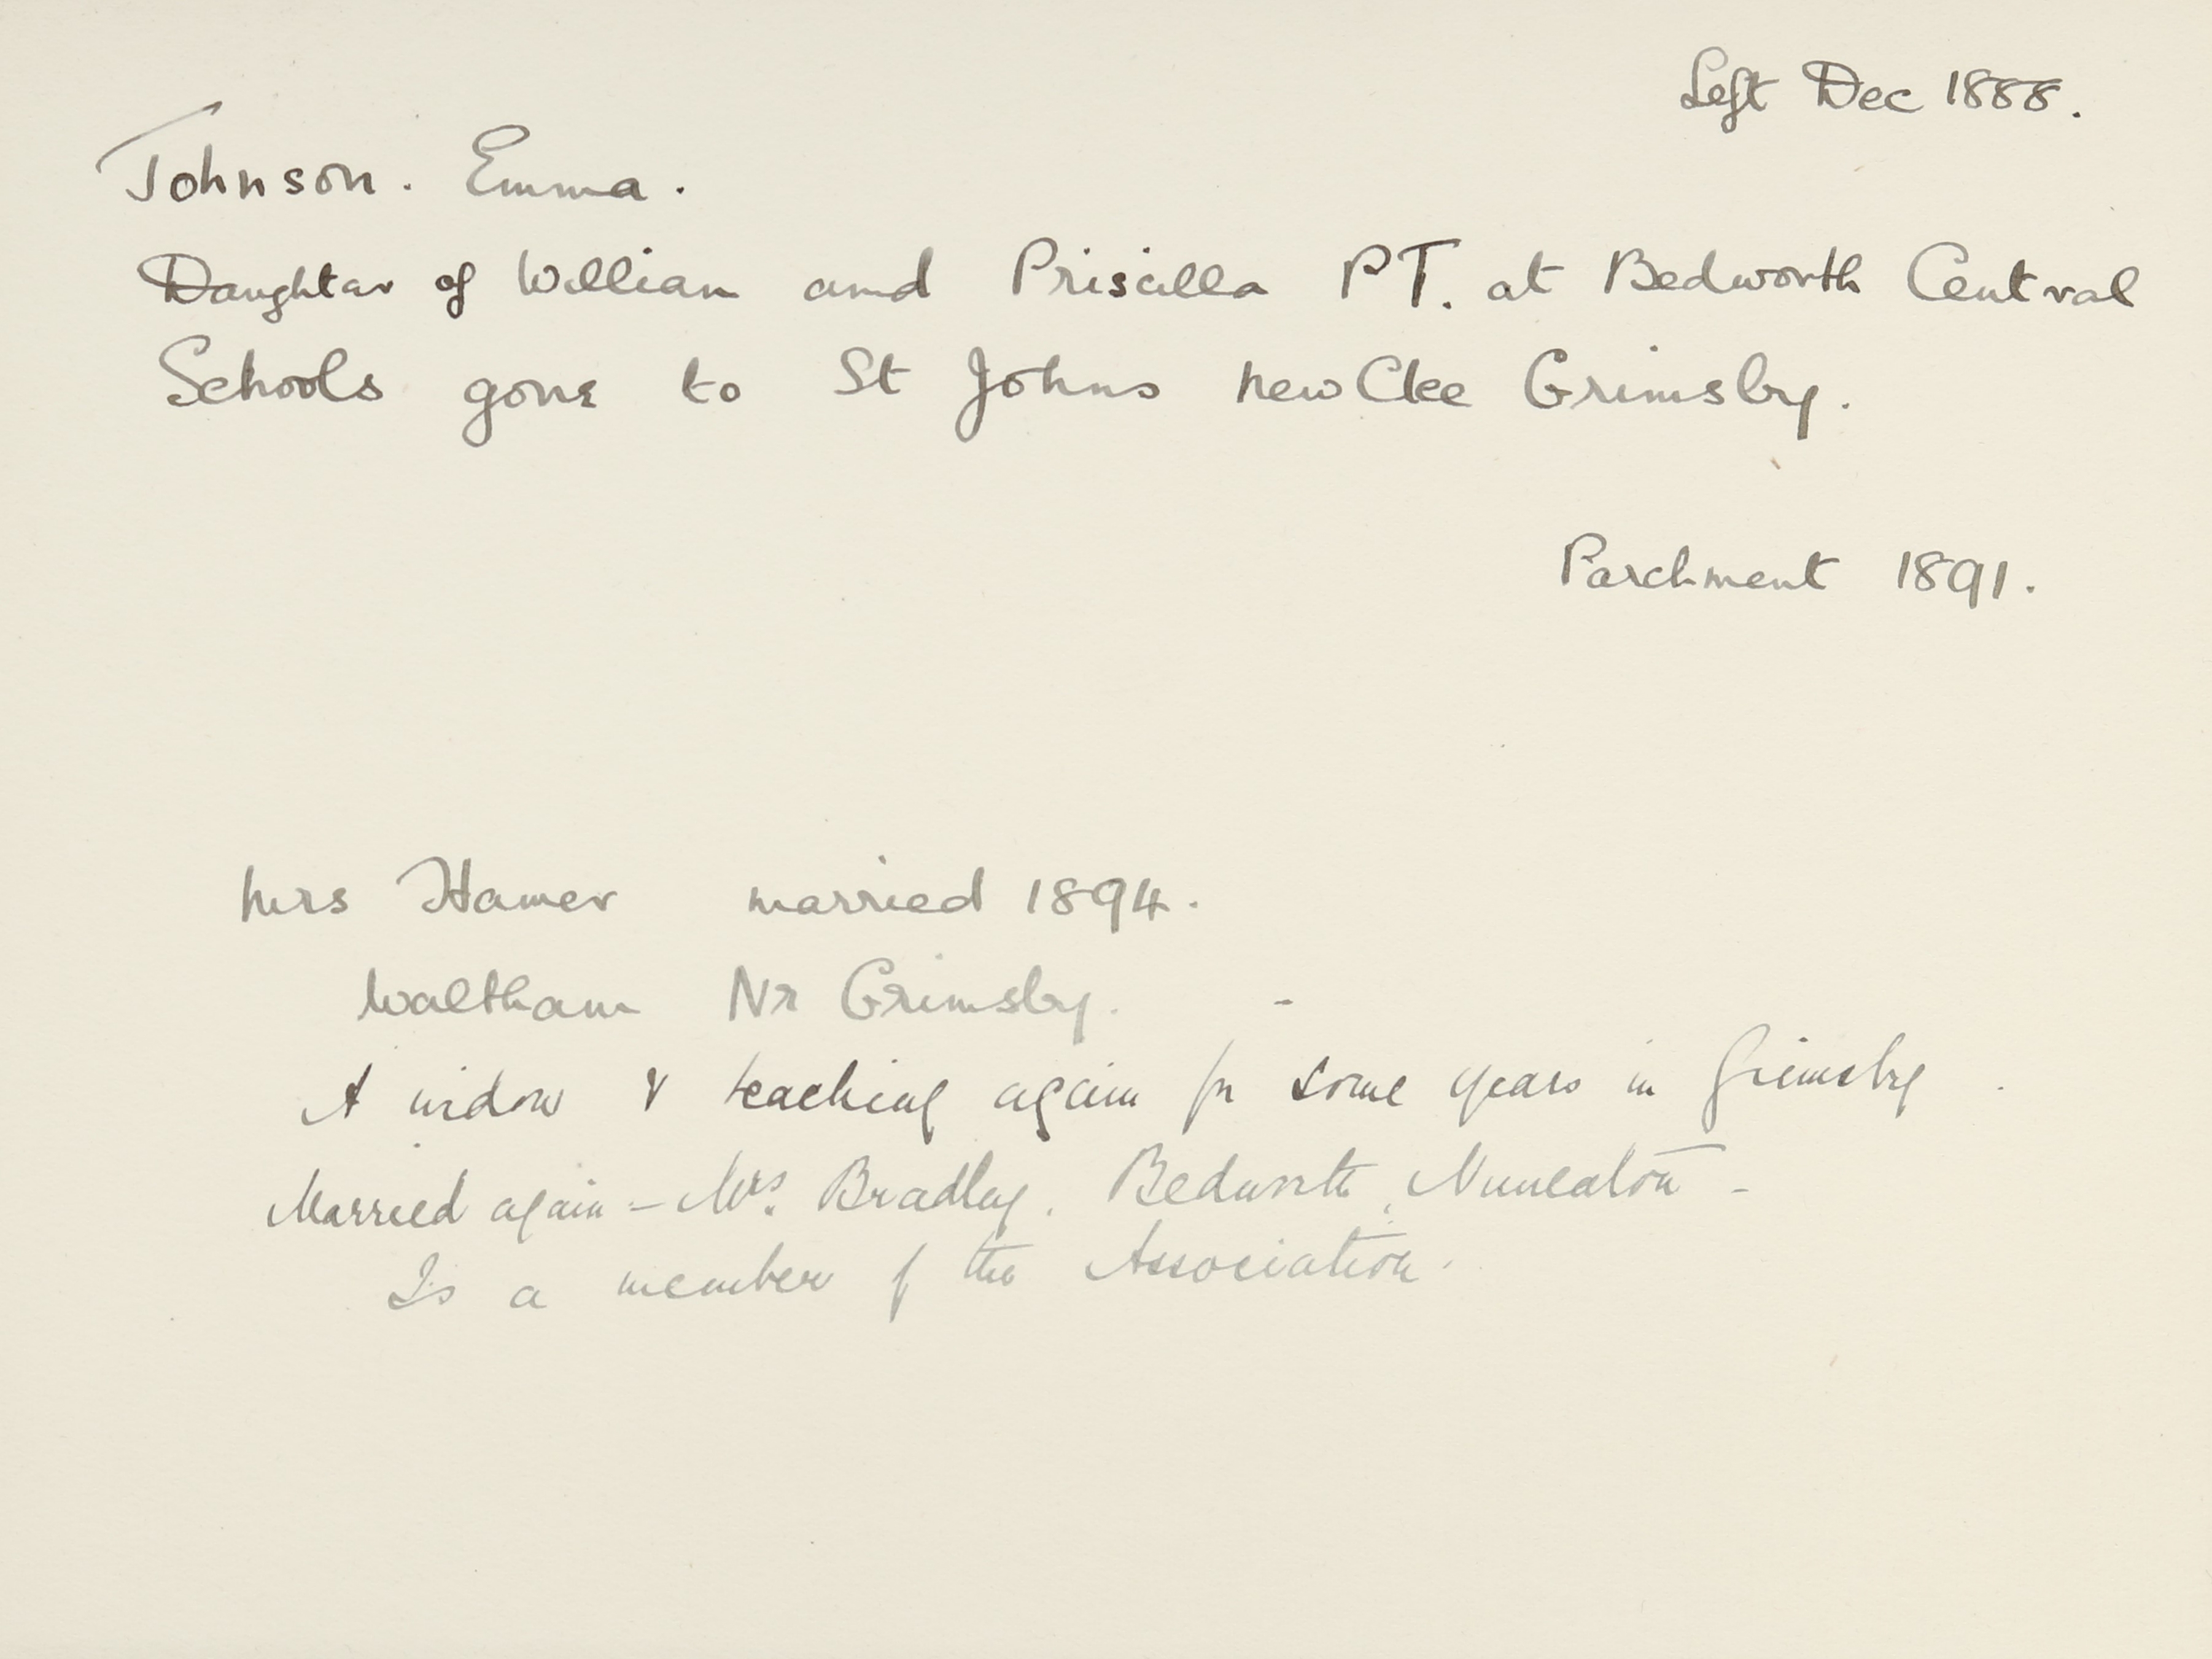 Left Dec 1888.
Johnson. Emma.
Daughter of William and Priscilla PT. at Bedworth Central
Schools gone to St Johns new Clee Grimsby.
Parchment 1891.
Mrs Hamer married 1894.
Waltham Nr Grimsby. -
A widow & teaching again for some years in Grimsby.
Married again - Mrs. Bradley. Bedworth, Nuneaton -
Is a member of the Association.